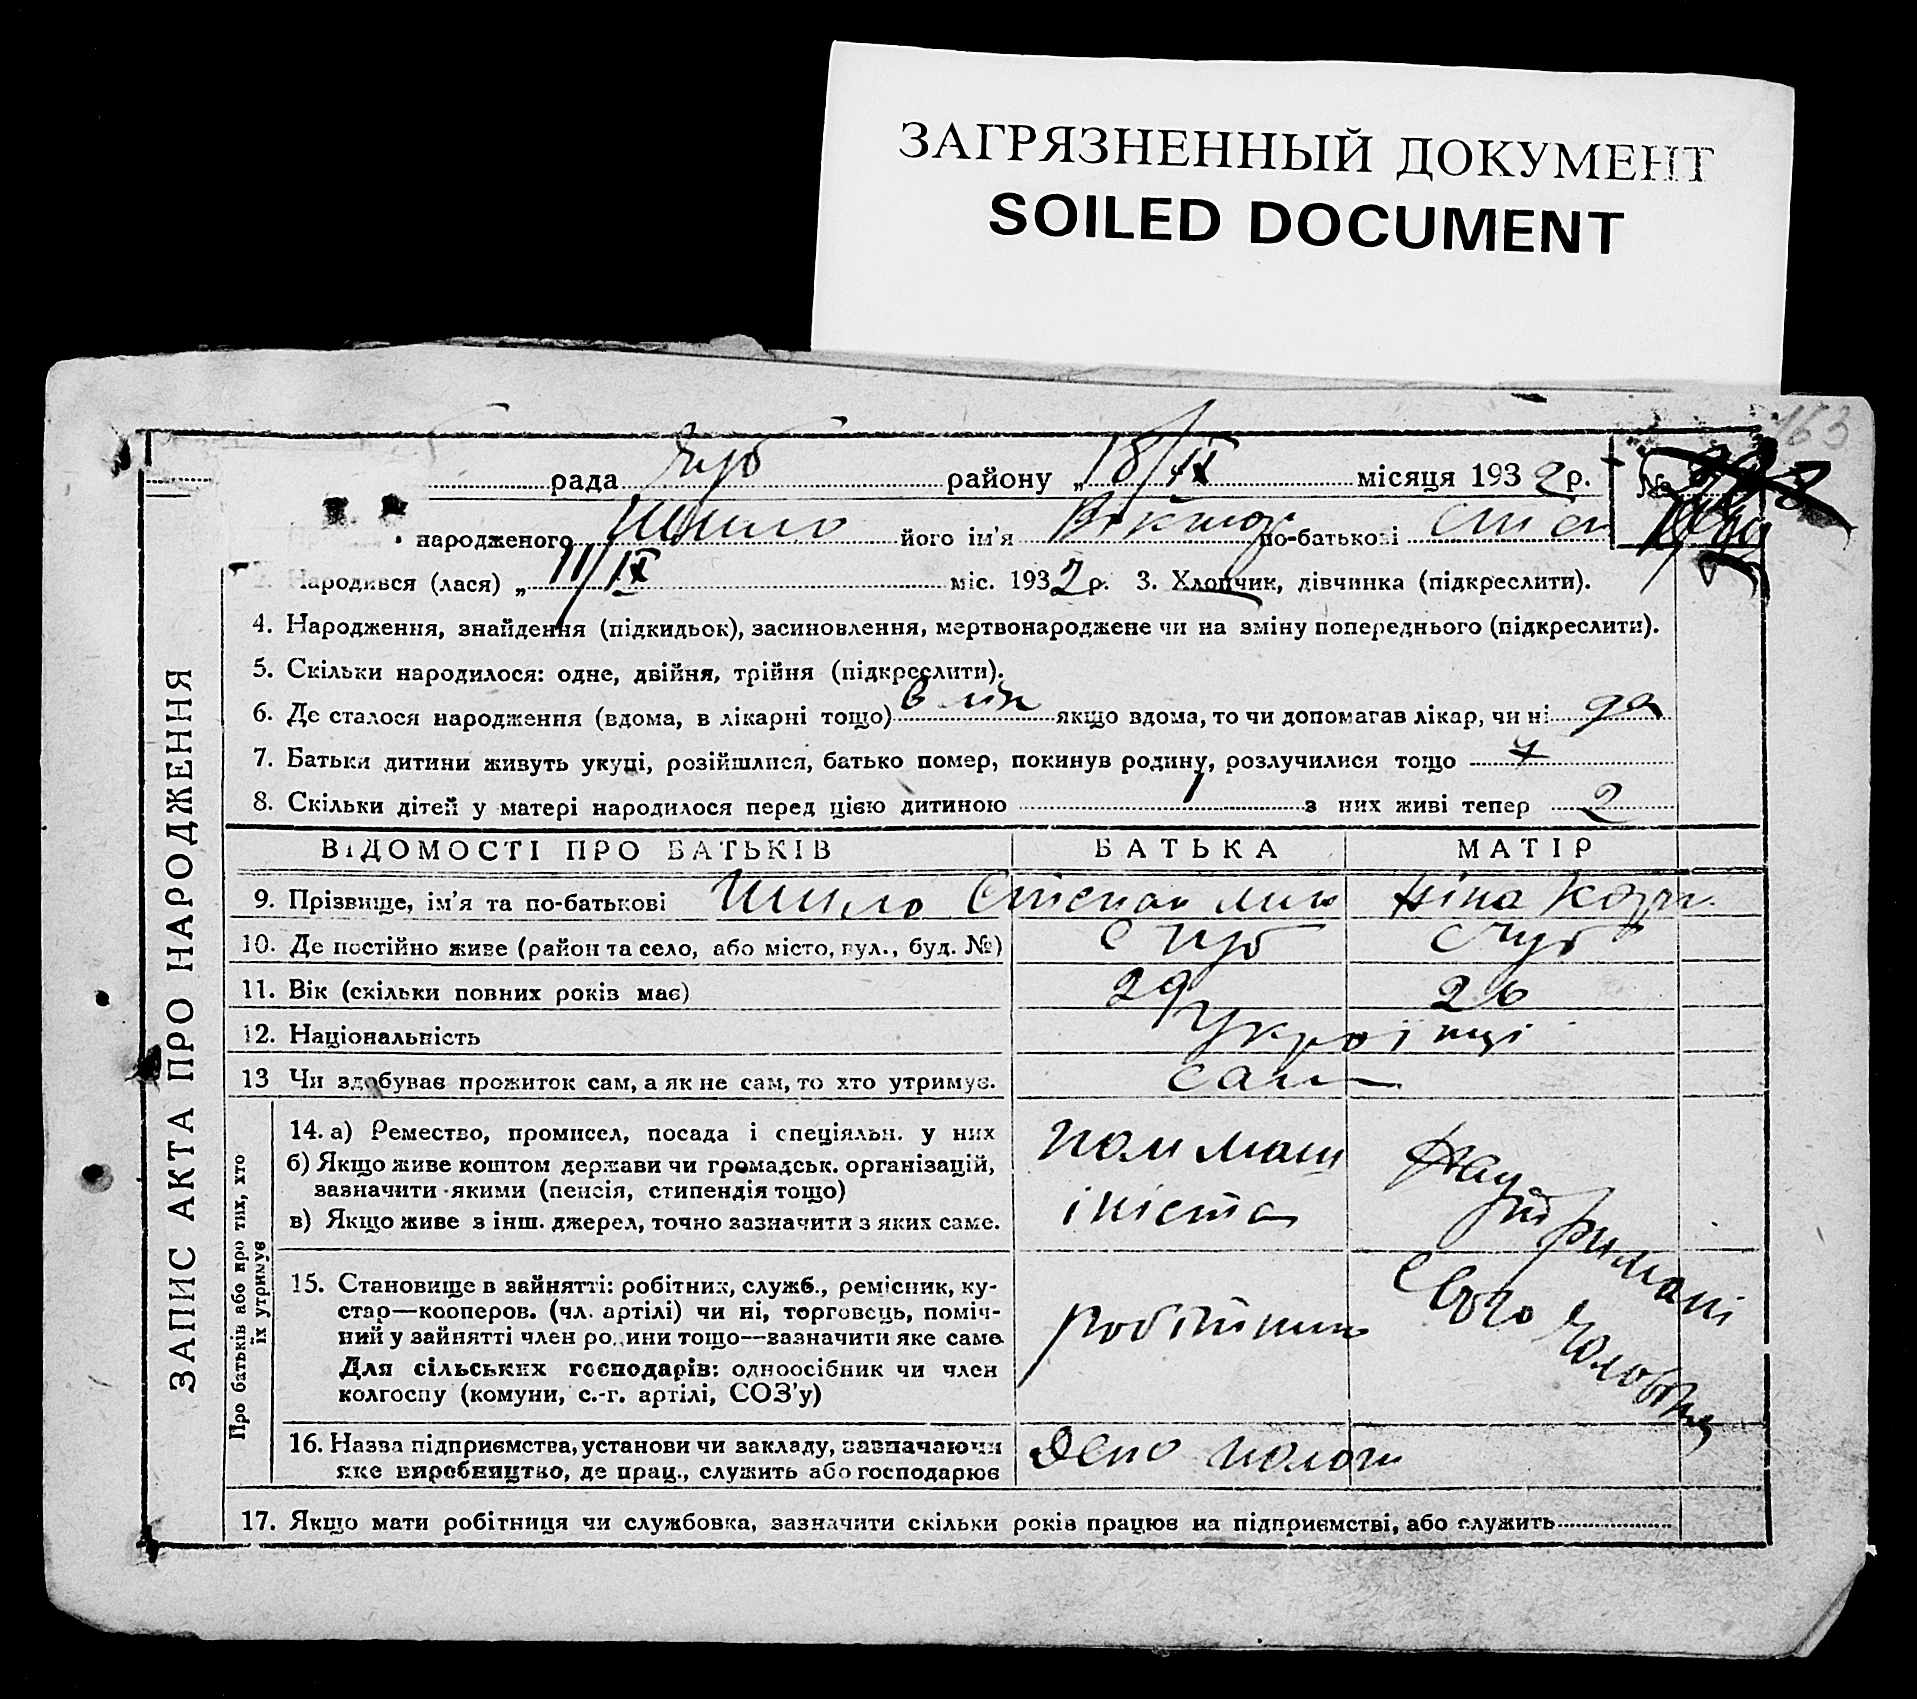 ЗАГРЯЗНЕННЫЙ ДОКУМЕНТ
SOILED DOCUMENT
163
рада Чуб району „ 18/IX місяця 1932 р. №
народженого Шило його ім'я Віктор по-батькові Степ
Народився (лася) „ 11/IX міс. 1932 р. 3. Хлопчик, дівчинка (підкреслити).
4. Народження, знайдення (підкидьок), засиновлення, мертвонароджене чи на зміну попереднього (підкреслити).
5. Скільки народилося: одне, двійня, трійня (підкреслити).
6. Де сталося народження (вдома, в лікарні тощо) в лік якщо вдома, то чи допомагав лікар, чи ні да
7. Батьки дитини живуть укупі, розійшлися, батько помер, покинув родину, розлучилися тощо
8. Скільки дітей у матері народилося перед цією дитиною 1 з них живі тепер 2
ЗАПИС АКТА ПРО НАРОДЖЕННЯ
ВІДОМОСТІ ПРО БАТЬКІВ БАТЬКА МАТІР
9. Прізвище, ім'я та по-батькові Шило Степан Мик Ніна Карп
10. Де постійно живе (район та село, або місто, вул., буд. №) с Чуб с Чуб
11. Вік (скільки повних років має) 29 26
12. Національність Українці
13 Чи здобуває прожиток сам, а як не сам, то хто утримує. сам
Про батьків або про тих, хто
їх утримує
14. а) Ремество, промисел, посада і спеціяльн. у них
б) Якщо живе коштом держави чи громадськ. організацій,
зазначити якими (пенсія, стипендія тощо)
в) Якщо живе з інш. джерел, точно зазначити з яких саме.
пом маш
ініста
На
утриманні
свого
чоловіка
15. Становище в зайнятті: робітник, служб., ремісник, ку-
стар—кооперов. (чл. артілі) чи ні, торговець, поміч-
ний у зайнятті член родини тощо—зазначити яке саме
Для сільських господарів: одноосібник чи член
колгоспу (комуни, с.-г. артілі, СОЗ'у)
робітник
16. Назва підприємства, установи чи закладу, зазначаючи
яке виробництво, де прац., служить або господарює
Депо
17. Якщо мати робітниця чи службовка, зазначити скільки років працює на підприємстві, або служить